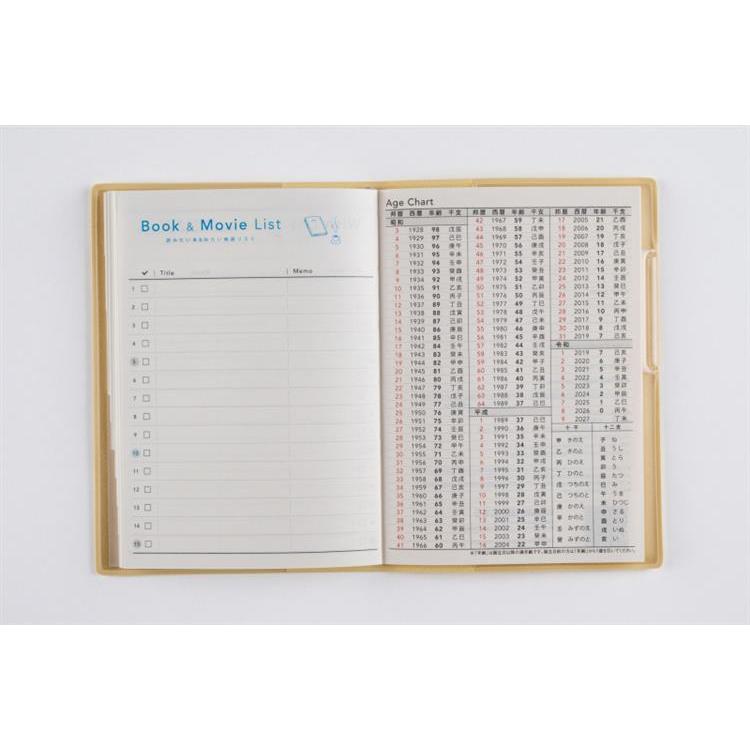 Book & Movie List
読みたい本&みたい映画リスト
✓ Title Memo
1
2
3
4
5
6
7
8
9
10
11
12
13
14
15
Age Chart
邦暦 西暦 年齢 干支
昭和
3 1928 98 戊辰
4 1929 97 己巳
5 1930 96 庚午
6 1931 95 辛未
7 1932 94 壬申
8 1933 93 癸酉
9 1934 92 甲戌
10 1935 91 乙亥
11 1936 90 丙子
12 1937 89 丁丑
13 1938 88 戊寅
14 1939 87 己卯
15 1940 86 庚辰
16 1941 85 辛巳
17 1942 84 壬午
18 1943 83 癸未
19 1944 82 甲申
20 1945 81 乙酉
21 1946 80 丙戌
22 1947 79 丁亥
23 1948 78 戊子
24 1949 77 己丑
25 1950 76 庚寅
26 1951 75 辛卯
27 1952 74 壬辰
28 1953 73 癸巳
29 1954 72 甲午
30 1955 71 乙未
31 1956 70 丙申
32 1957 69 丁酉
33 1958 68 戊戌
34 1959 67 己亥
35 1960 66 庚子
36 1961 65 辛丑
37 1962 64 壬寅
38 1963 63 癸卯
39 1964 62 甲辰
40 1965 61 乙巳
41 1966 60 丙午
邦暦 西暦 年齢 干支
42 1967 59 丁未
43 1968 58 戊申
44 1969 57 己酉
45 1970 56 庚戌
46 1971 55 辛亥
47 1972 54 壬子
48 1973 53 癸丑
49 1974 52 甲寅
50 1975 51 乙卯
51 1976 50 丙辰
52 1977 49 丁巳
53 1978 48 戊午
54 1979 47 己未
55 1980 46 庚申
56 1981 45 辛酉
57 1982 44 壬戌
58 1983 43 癸亥
59 1984 42 甲子
60 1985 41 乙丑
61 1986 40 丙寅
62 1987 39 丁卯
63 1988 38 戊辰
64 1989 37 己巳
平成
1 1989 37 己巳
2 1990 36 庚午
3 1991 35 辛未
4 1992 34 壬申
5 1993 33 癸酉
6 1994 32 甲戌
7 1995 31 乙亥
8 1996 30 丙子
9 1997 29 丁丑
10 1998 28 戊寅
11 1999 27 己卯
12 2000 26 庚辰
13 2001 25 辛巳
14 2002 24 壬午
15 2003 23 癸未
16 2004 22 甲申
邦暦 西暦 年齢 干支
17 2005 21 乙酉
18 2006 20 丙戌
19 2007 19 丁亥
20 2008 18 戊子
21 2009 17 己丑
22 2010 16 庚寅
23 2011 15 辛卯
24 2012 14 壬辰
25 2013 13 癸巳
26 2014 12 甲午
27 2015 11 乙未
28 2016 10 丙申
29 2017 9 丁酉
30 2018 8 戊戌
31 2019 7 己亥
令和
1 2019 7 己亥
2 2020 6 庚子
3 2021 5 辛丑
4 2022 4 壬寅
5 2023 3 癸卯
6 2024 2 甲辰
7 2025 1 乙巳
8 2026 0 丙午
9 2027 - 丁未
十干 十二支
甲 きのえ
乙 きのと
丙 ひのえ
丁 ひのと
戊 つちのえ
己 つちのと
庚 かのえ
辛 かのと
壬 みずのえ
癸 みずのと
子 ね
丑 うし
寅 とら
卯 う
辰 たつ
巳 み
午 うま
未 ひつじ
申 さる
酉 とり
戌 いぬ
亥 い
※「年齢」は誕生日以降の満年齢です。誕生日前の方は「年齢」から1歳を引いてください。